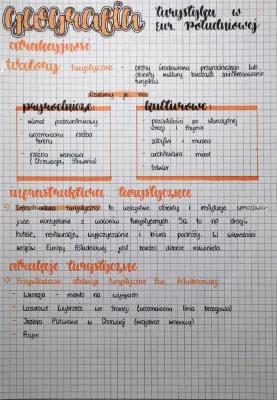 Geografia
turystyka w
eur. Południowej
atrakcyjność
Walory turystyczne - cechy środowiska przyrodniczego lub
obiekty kultury budzące zainteresowanie
turystów.
Dzielimy je na:
przyrodnicze:
- klimat podzwrotnikowy
- urozmaicona rzeźba
terenu
- rzeźba krasowa
(Chorwacja, Słowenia)
kulturowe:
- pozostałości po starożytnej
Grecji i Rzymie
- zabytki i muzea
- architektura miast
- folklor
infrastruktura turystyczna
Infrastruktura turystyczna to wszystkie obiekty i instytucje umożliwia-
jące korzystanie z walorów turystycznych. Są to np. drogi,
hotele, restauracje, wypożyczalnie i biura podróży. W większości
krajów Europy Południowej jest bardzo dobrze rozwinięta.
atrakcje turystyczne
Przykładowe atrakcje turystyczne Eur. Południowej:
- Wenecja - miasto na wyspach
- Lazurowe Wybrzeże we Francji (urozmaicona linia brzegowa)
- Jeziora Plitwickie w Chorwacji (krajobraz krasowy)
- Rzym